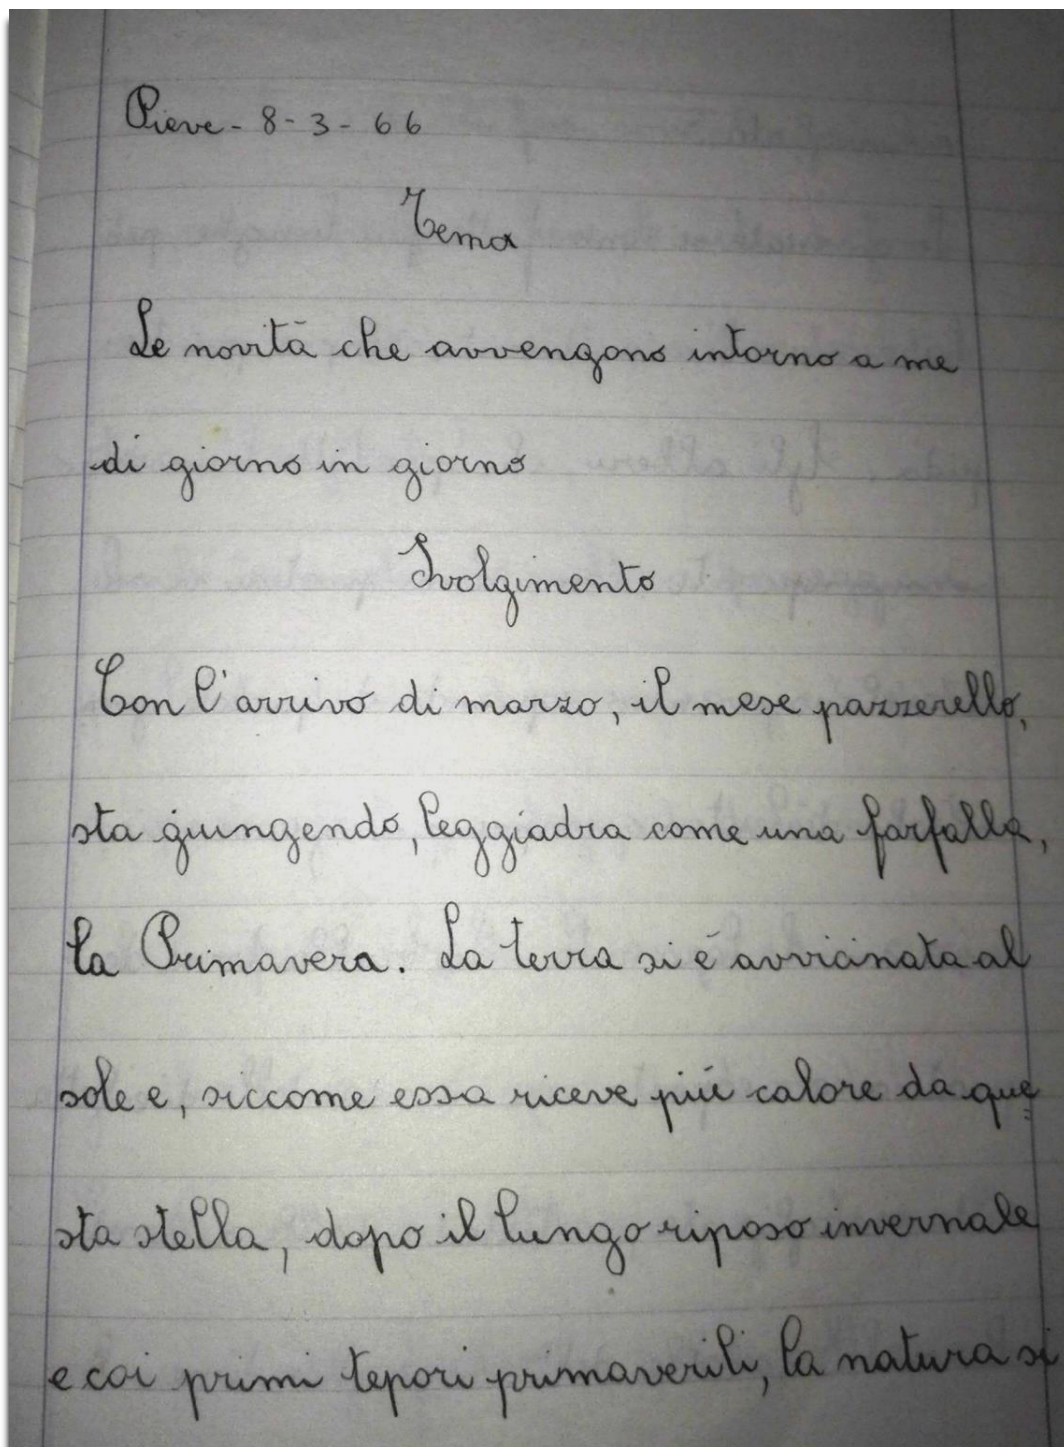 Pieve - 8 - 3 - 66
Tema
Le novità che avvengono intorno a me
di giorno in giorno
Svolgimento
Con l'arrivo di marzo, il mese pazzerello,
sta giungendo, leggiadra come una farfalla,
la Primavera. La terra si è avvicinata al
sole e, siccome essa riceve più calore da que=
sta stella, dopo il lungo riposo invernale
e coi primi tepori primaverili, la natura si